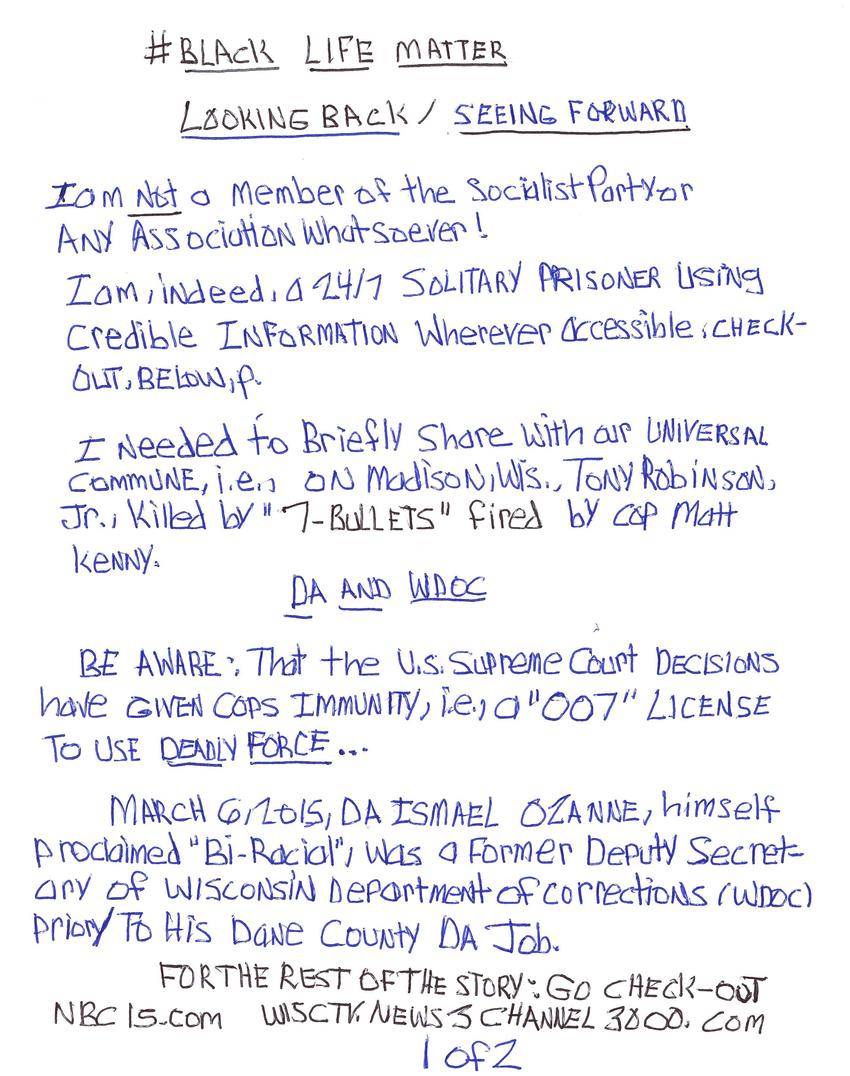 #BLACK LIFE MATTER
LOOKING BACK/ SEEING FORWARD
I am Not a Member of the Socialist Party or
ANY Association Whatsoever!
I am, indeed, a 24/7 SOLITARY PRISONER USING
Credible INFORMATION Wherever accessible, CHECK-
OUT, BELOW, p.
I Needed to Briefly Share with our UNIVERSAL
COMMUNE, i.e., ON Madison, Wis., TONY RobiNSON,
Jr., Killed by "7-BULLETS" fired by COP Matt
KENNY.
DA AND WDOC
BE AWARE: That the U.S. Supreme Court DECISIONS
have GIVEN COPS IMMUNITY, i.e., a "007" LICENSE
TO USE DEADLY FORCE...
MARCH 6, 2015, DA ISMAEL OZANNE, himself
proclaimed "Bi-Racial", was a Former Deputy Secret-
ary of WISCONSIN Department of corrections (WDOC)
prior To His Dane COUNTY DA Job.
FOR THE REST OF THE STORY: GO CHECK-OUT
NBC 15.com WISCTV. NEWS 3 CHANNEL 3000. COM
1 of 2